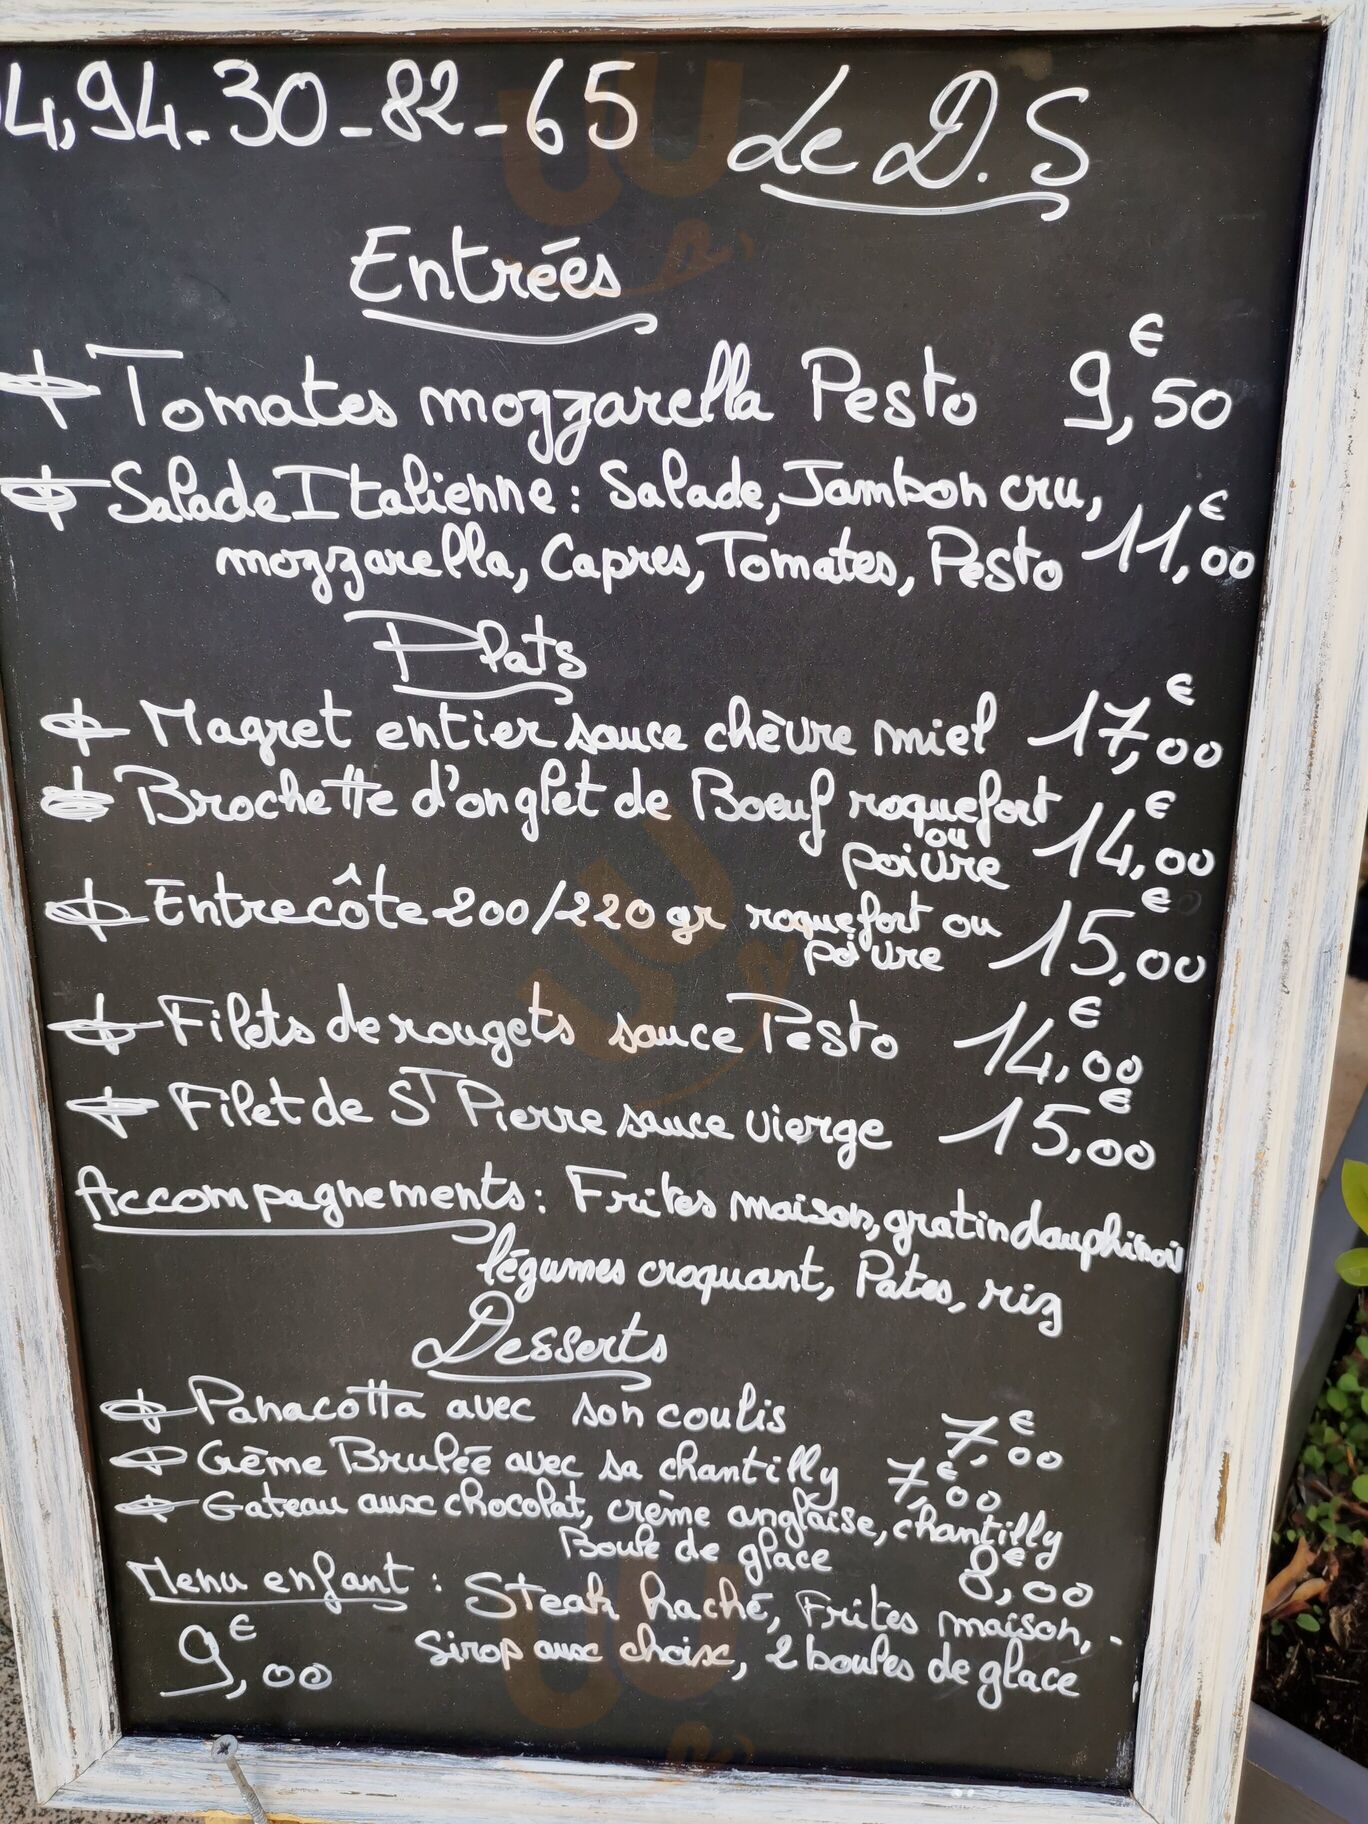 04.94.30-82-65 Le D.S
Entrées
Tomates mozzarella Pesto 9,50€
Salade Italienne : Salade, Jambon cru,
mozzarella, Capres, Tomates, Pesto 11,00€
Plats
Magret entier sauce chèvre miel 17,00€
Brochette d'onglet de Boeuf roquefort
ou
poivre 14,00€
Entrecôte 200/220 gr roquefort ou
poivre 15,00€
Filets de rougets sauce Pesto 14,00€
Filet de ST Pierre sauce vierge 15,00€
Accompagnements : Frites maison, gratin dauphinois
légumes croquant, Pates, riz
Desserts
Panacotta avec son coulis 7,00€
Crème Brulée avec sa chantilly 7,00€
Gateau aux chocolat, crème anglaise, chantilly
Boule de glace 8,00€
Menu enfant : Steak haché, Frites maison,
9,00€ Sirop aux choix, 2 boules de glace